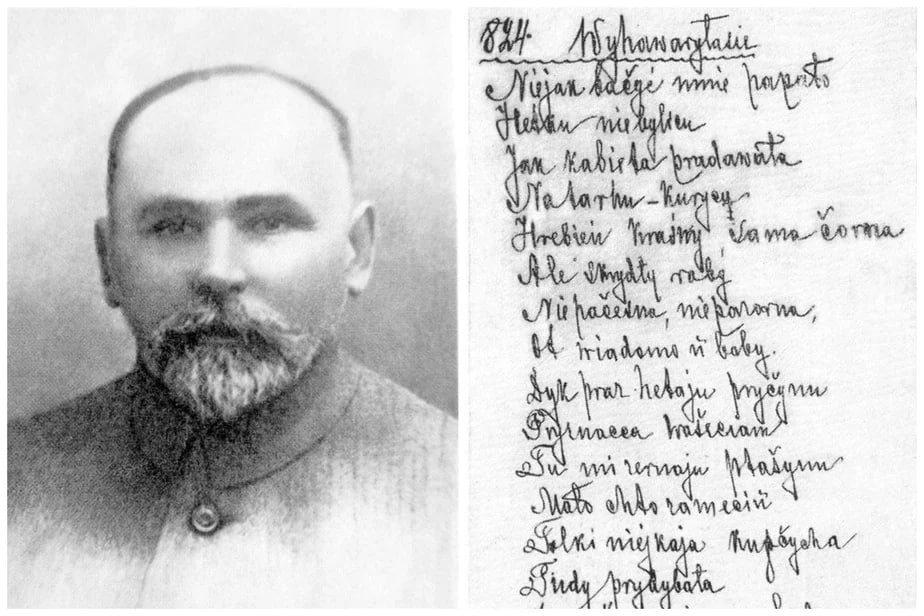 824. Wyhawaryłasie
Niejak bačyć mnie papało
Hetku niebylicu
Jak kabieta pradawała
Na tarhu - kurycu
Hrebień kraśny, sama čorna
Ale skrydły raby
Niepačesna, niepazorna,
Ot wiadomo ŭ baby.
Dyk praz hetaju pryčynu
hašciam
Tu mizernaju ptašynu
Mało chto zameciŭ
Tolki niejkaja kupčycha
Tudy prydybała